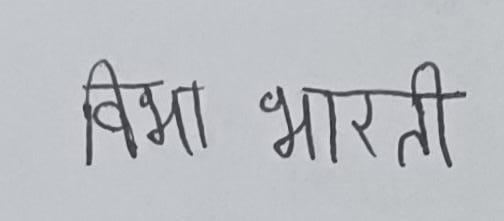 विभा भारती